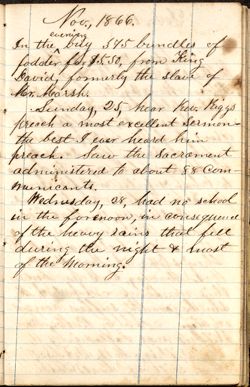 Nov, 1866.
evening
In the buy 375 bundles of
fodder for $5.50, from King
David, formerly the slave of
Mr. Marsh.
Sunday, 25, hear Rev. Riggs
preach a most excellent sermon–
the best I ever heard him
preach. Saw the sacrament
administered to about 88 com-
municants.
Wednesday, 28, had no school
in the forenoon, in consequence
of the heavy rains that fell
during the night & most
of the morning.